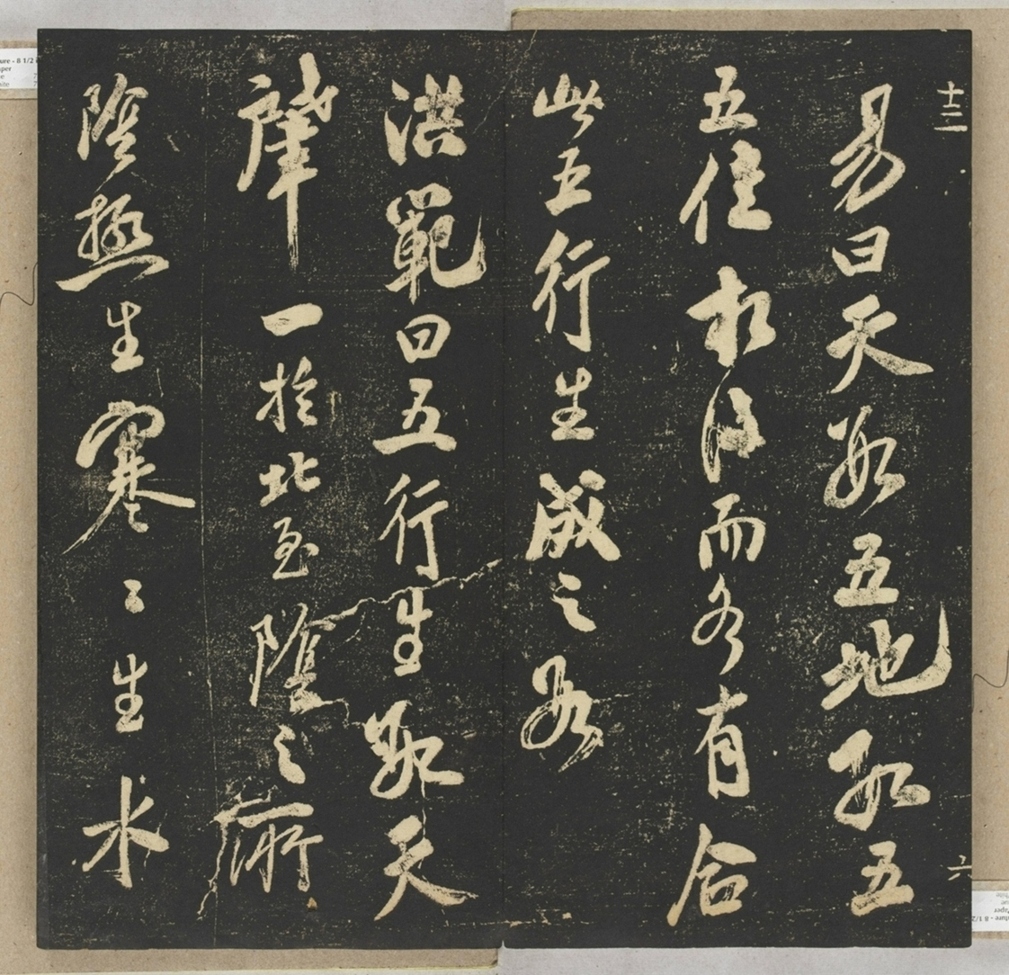 十三
六
易曰天數五地數五
五位相得而各有合
此五行生成之數
洪範曰五行生數天
肇一於北至陰之所
陰極生寒〻生水